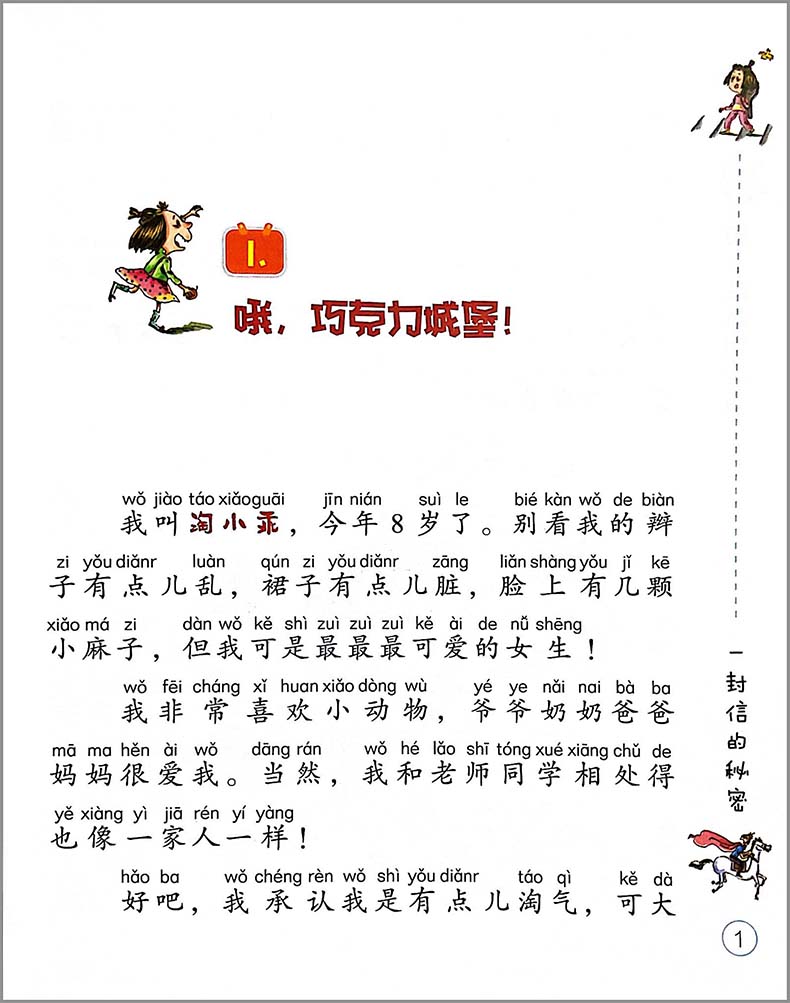 1.
哦，巧克力城堡！
wǒ jiào táo xiǎoguāi jīn nián suì le bié kàn wǒ de biàn
我叫淘小乖，今年8岁了。别看我的辫
zi yǒu diǎnr luàn qún zi yǒu diǎnr zāng liǎn shàng yǒu jǐ kē
子有点儿乱，裙子有点儿脏，脸上有几颗
xiǎo má zi dàn wǒ kě shì zuì zuì zuì kě ài de nǚ shēng
小麻子，但我可是最最最可爱的女生！
wǒ fēi cháng xǐ huan xiǎo dòng wù yé ye nǎi nai bà ba
我非常喜欢小动物，爷爷奶奶爸爸
mā ma hěn ài wǒ dāng rán wǒ hé lǎo shī tóng xué xiāng chǔ de
妈妈很爱我。当然，我和老师同学相处得
yě xiàng yì jiā rén yí yàng
也像一家人一样！
hǎo ba wǒ chéng rèn wǒ shì yǒu diǎnr táo qì kě dà
好吧，我承认我是有点儿淘气，可大
一封信的秘密
1